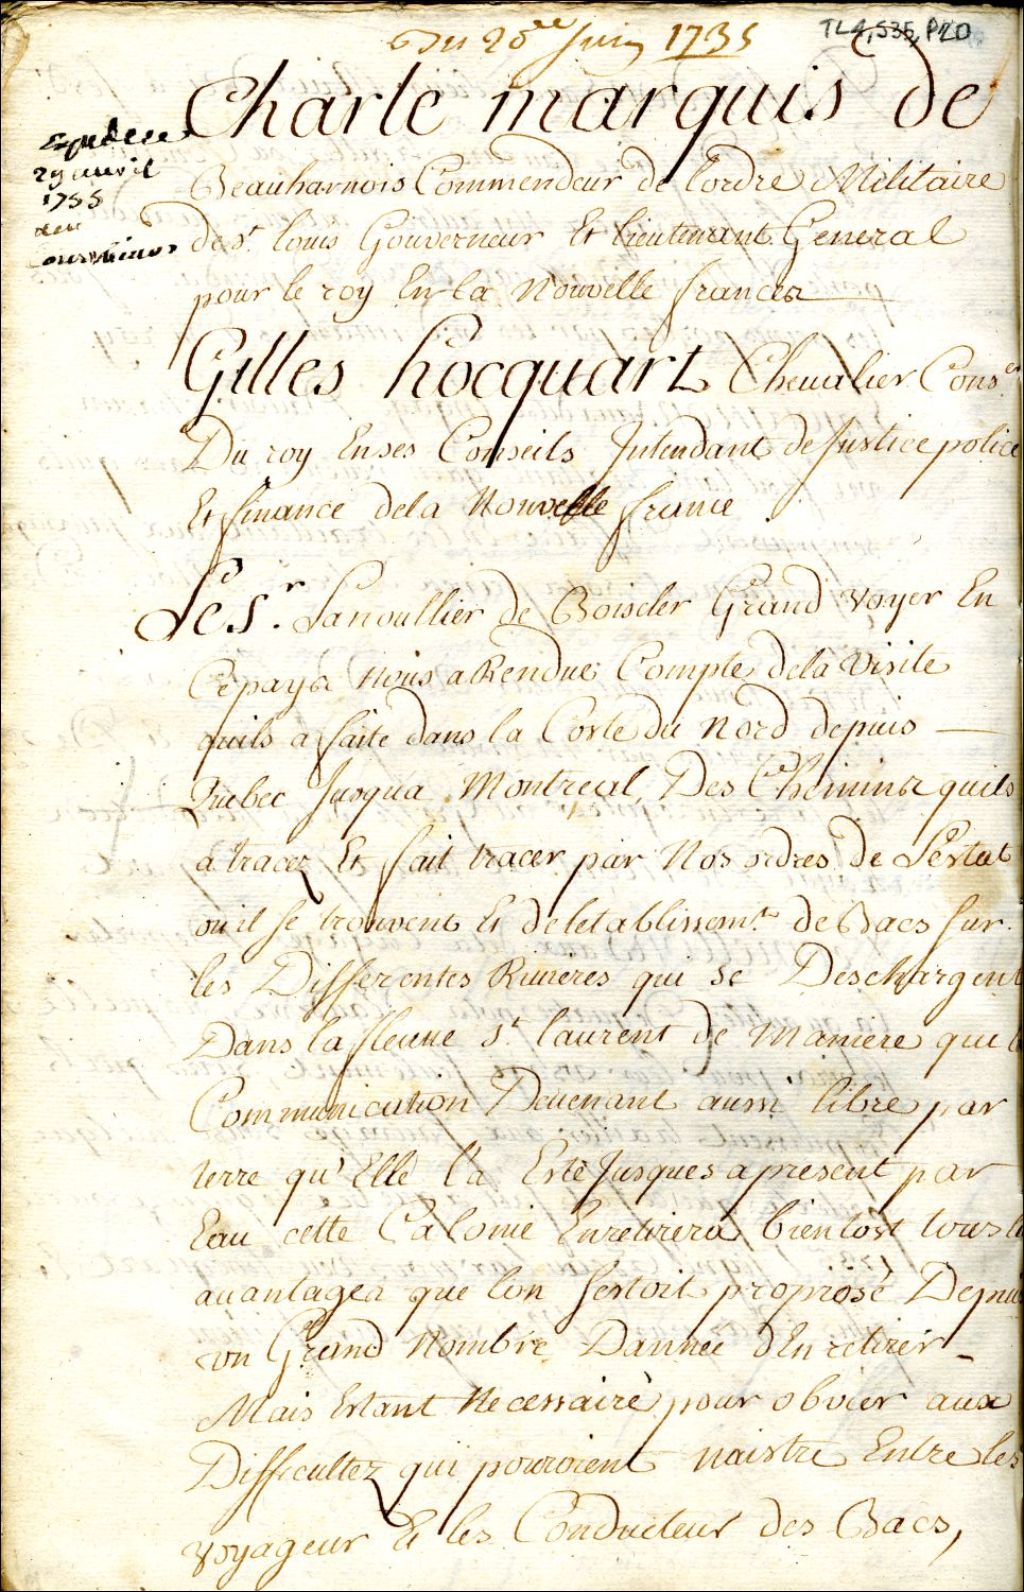 Du 20ee Juin 1735
TL4, S35, P20
Charle marquis de
29 auvril
1755
Beauharnois Commendeur de lordre Militaire
de st. louis Gouverneur Et lieutenant General
pour le roy En la Nouvelle france
Gilles hocquart Cheualier Cons.er
Du roy En ses Conseils Intendant de Justice police
Et finance dela Nouvelle france
Le Sr. Lanoullier de Boiscler Grand voyer En
Ce pays Nous a Rendue Compte dela visite
quils a faite dans la Coste du Nord depuis —
Quebec Jusqua Montreal, Des Chemins quils
a tracez Et fait tracer par Nos ordres de Lestat
ou il se trouvent Et de letablissemt. de Bacs sur
les Differentes Rivieres qui se Deschargent
Dans la fleuue st. laurent de Maniere que
Communication Deuenant aussi libre par
terre qu'Elle l'a Esté Jusques a present par
Eau cette Calonie En retirera bientost tous
auantages que lon sestoit proposé Depuis
un Grand Nombre Dannee d'En retirer
Mais Estant Necessaire pour obvier aux
Difficultez qui pouroient naistre Entre les
voyageur Et les Conducteur des Bacs,